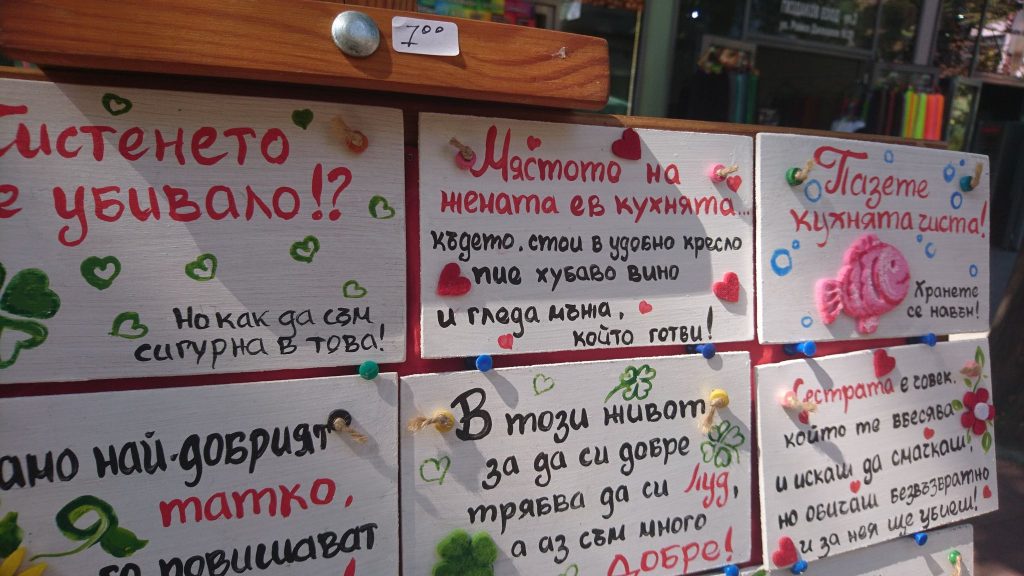 7⁰⁰
Чистенето
е убивало!?
Но как да съм
сигурна в това!
Мястото на
жената е в кухнята...
където. стои в удобно кресло
пие хубаво вино
и гледа мъжа,
който готви!
Пазете
кухнята чиста!
Хранете
се навън!
най-добрият
татко,
повишават
В този живот
за да си добре
трябва да си луд,
а аз съм много
добре!
Сестрата е човек,
който те вбесява
и искаш да смачкаш,
но обичаш безвъзвратно
и за нея ще убиеш!